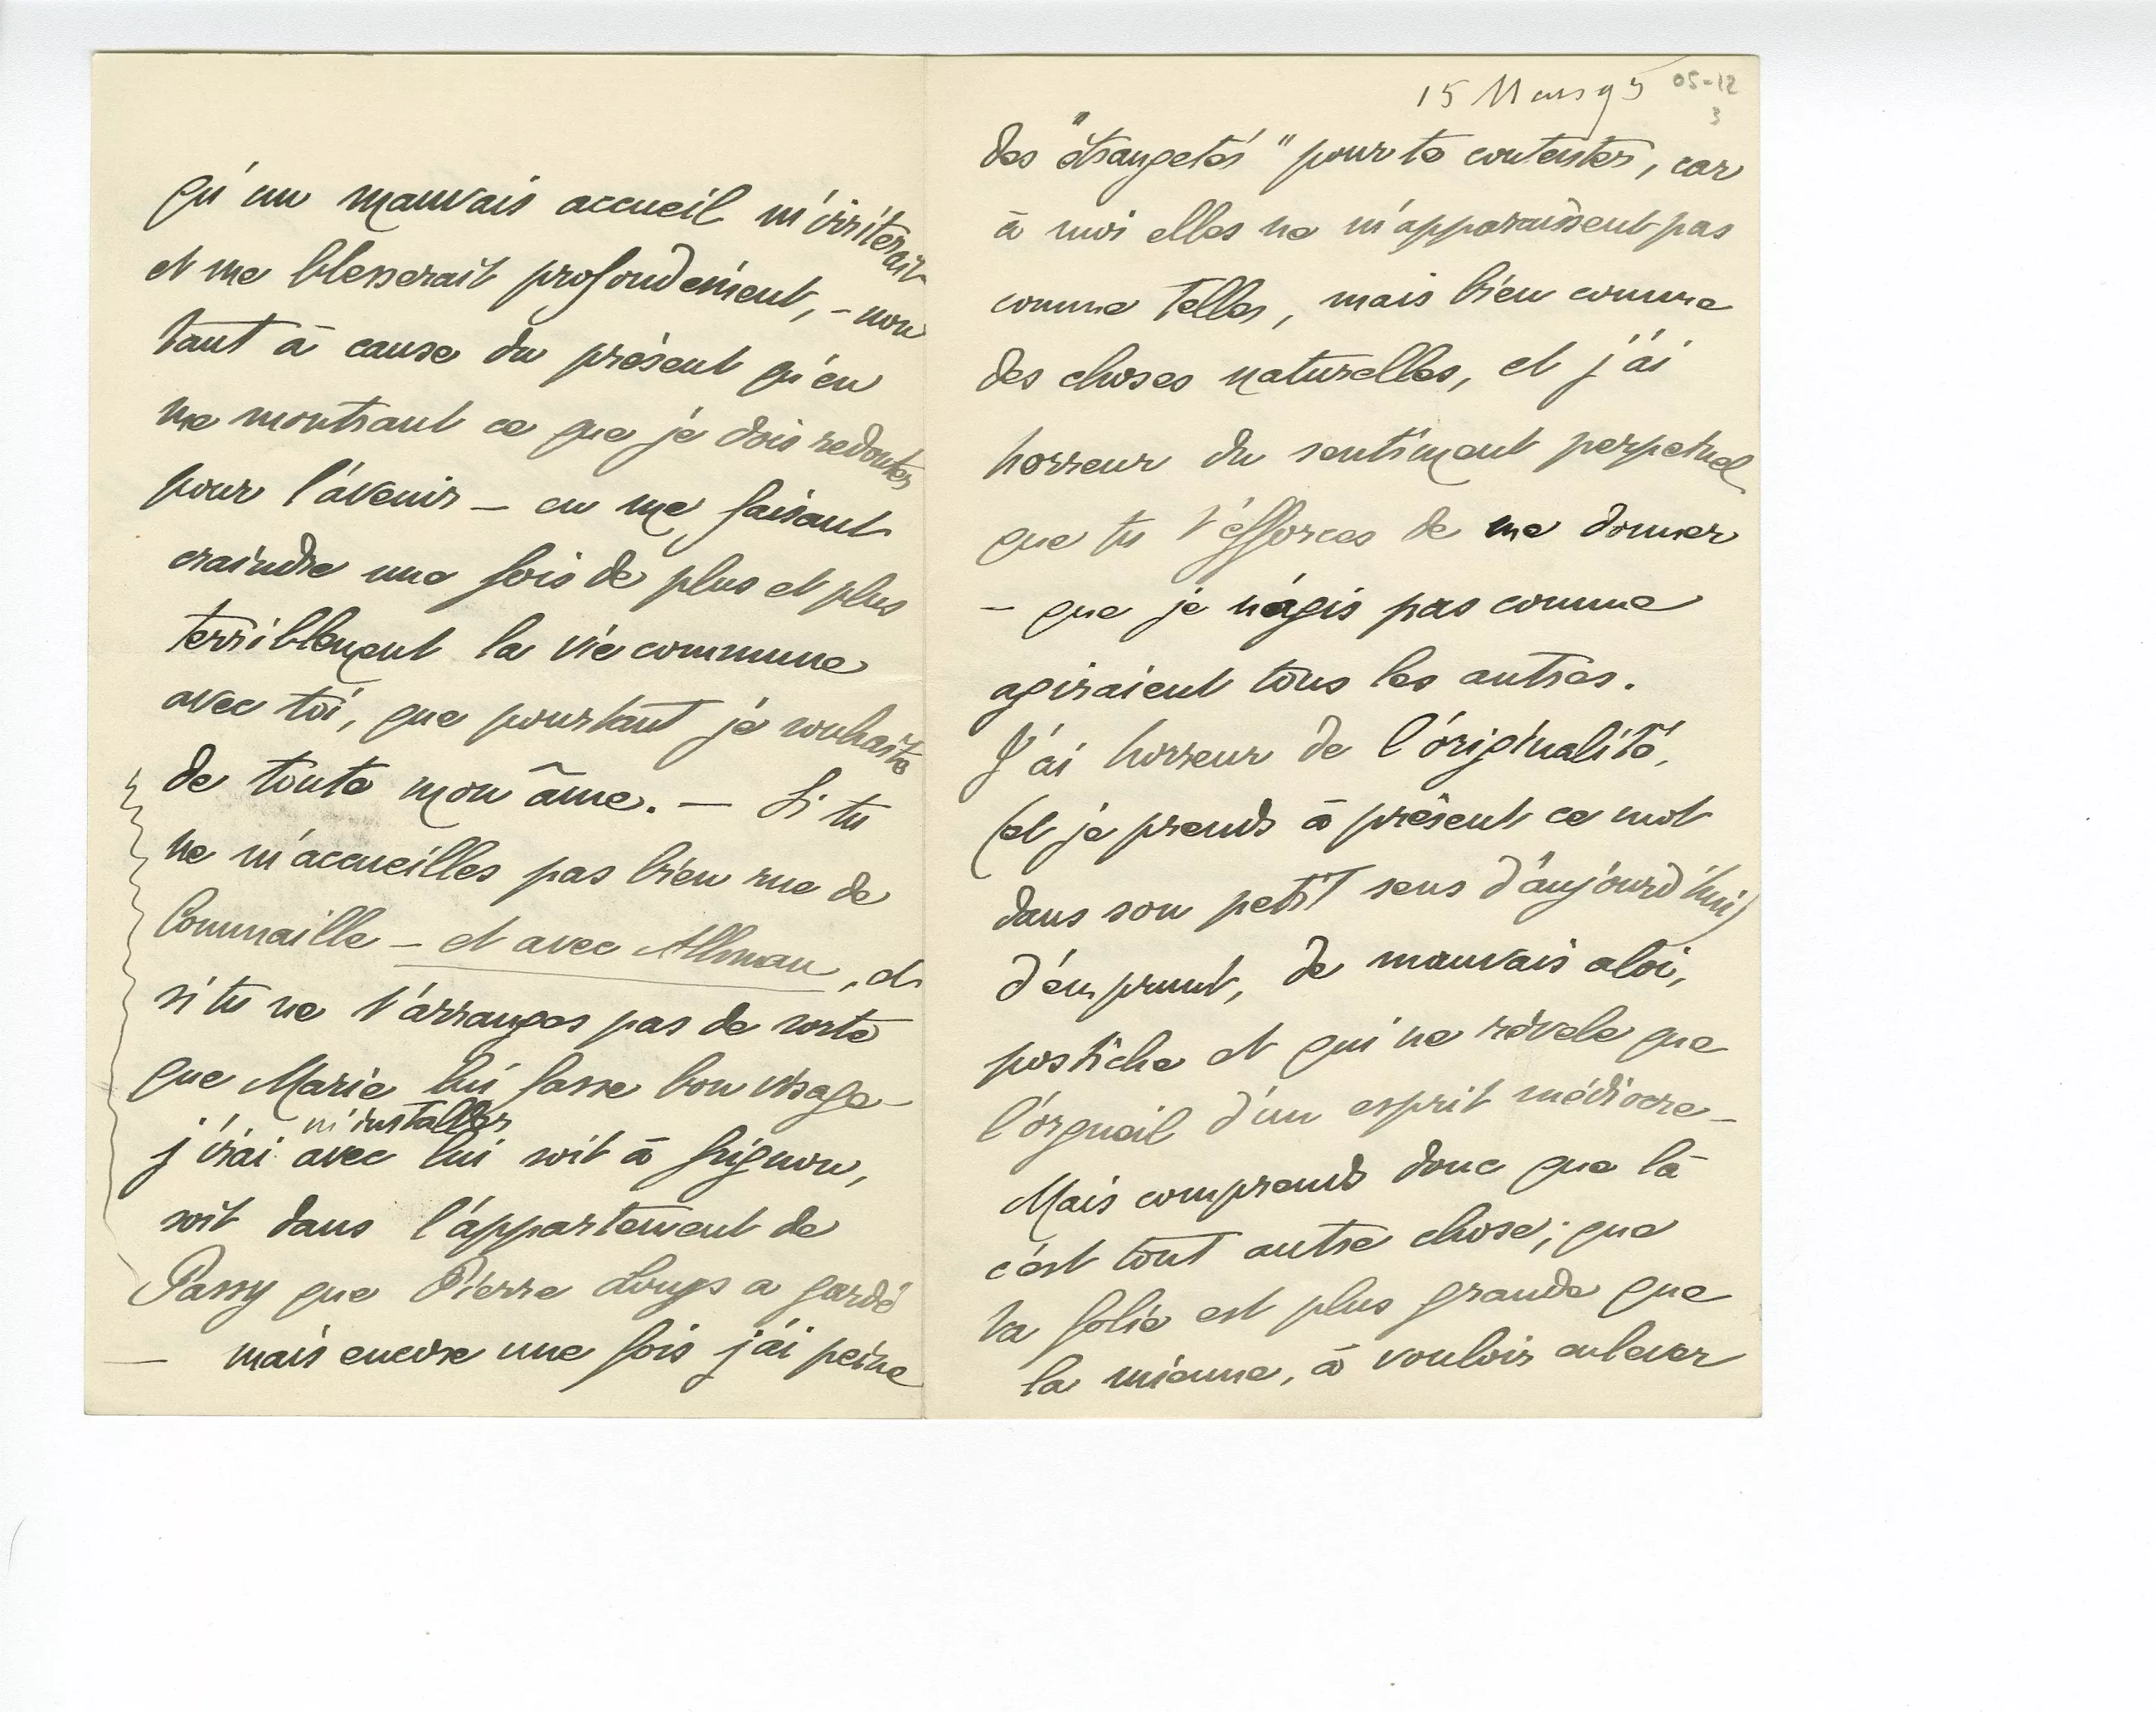 qu'un mauvais accueil m'irriterait
et me blesserait profondément, – non
tant à cause du présent qu'en
me montrant ce que je dois redouter
pour l'avenir – en me faisant
craindre une fois de plus et plus
terriblement la vie commune
avec toi, que pourtant je souhaite
de toute mon âme. – Si tu
ne m'accueilles pas bien rue de
Commaille – et avec Athman, et
si tu ne t'arranges pas de sorte
que Marie lui fasse bon visage –
m'installer
j'irai avec lui soit à Grignon,
soit dans l'appartement de
Passy que Pierre Louÿs a gardé
– mais encore une fois j'ai peine
15 Mars 95
05-12
3
des "étrangetés" pour te contenter, car
à moi elles ne m'apparaissent pas
comme telles, mais bien comme
des choses naturelles, et j'ai
horreur du sentiment perpetuel
que tu t'efforces de me donner
– que je n'agis pas comme
agiraient tous les autres.
J'ai horreur de l'originalité,
(et je prends à présent ce mot
dans son petit sens d'aujourd'hui)
d'emprunt, de mauvais aloi,
postiche et qui ne révele que
l'orgueil d'un esprit médiocre –
Mais comprends donc que là
c'est tout autre chose; que
ta folie est plus grande que
la mienne, à vouloir enlever